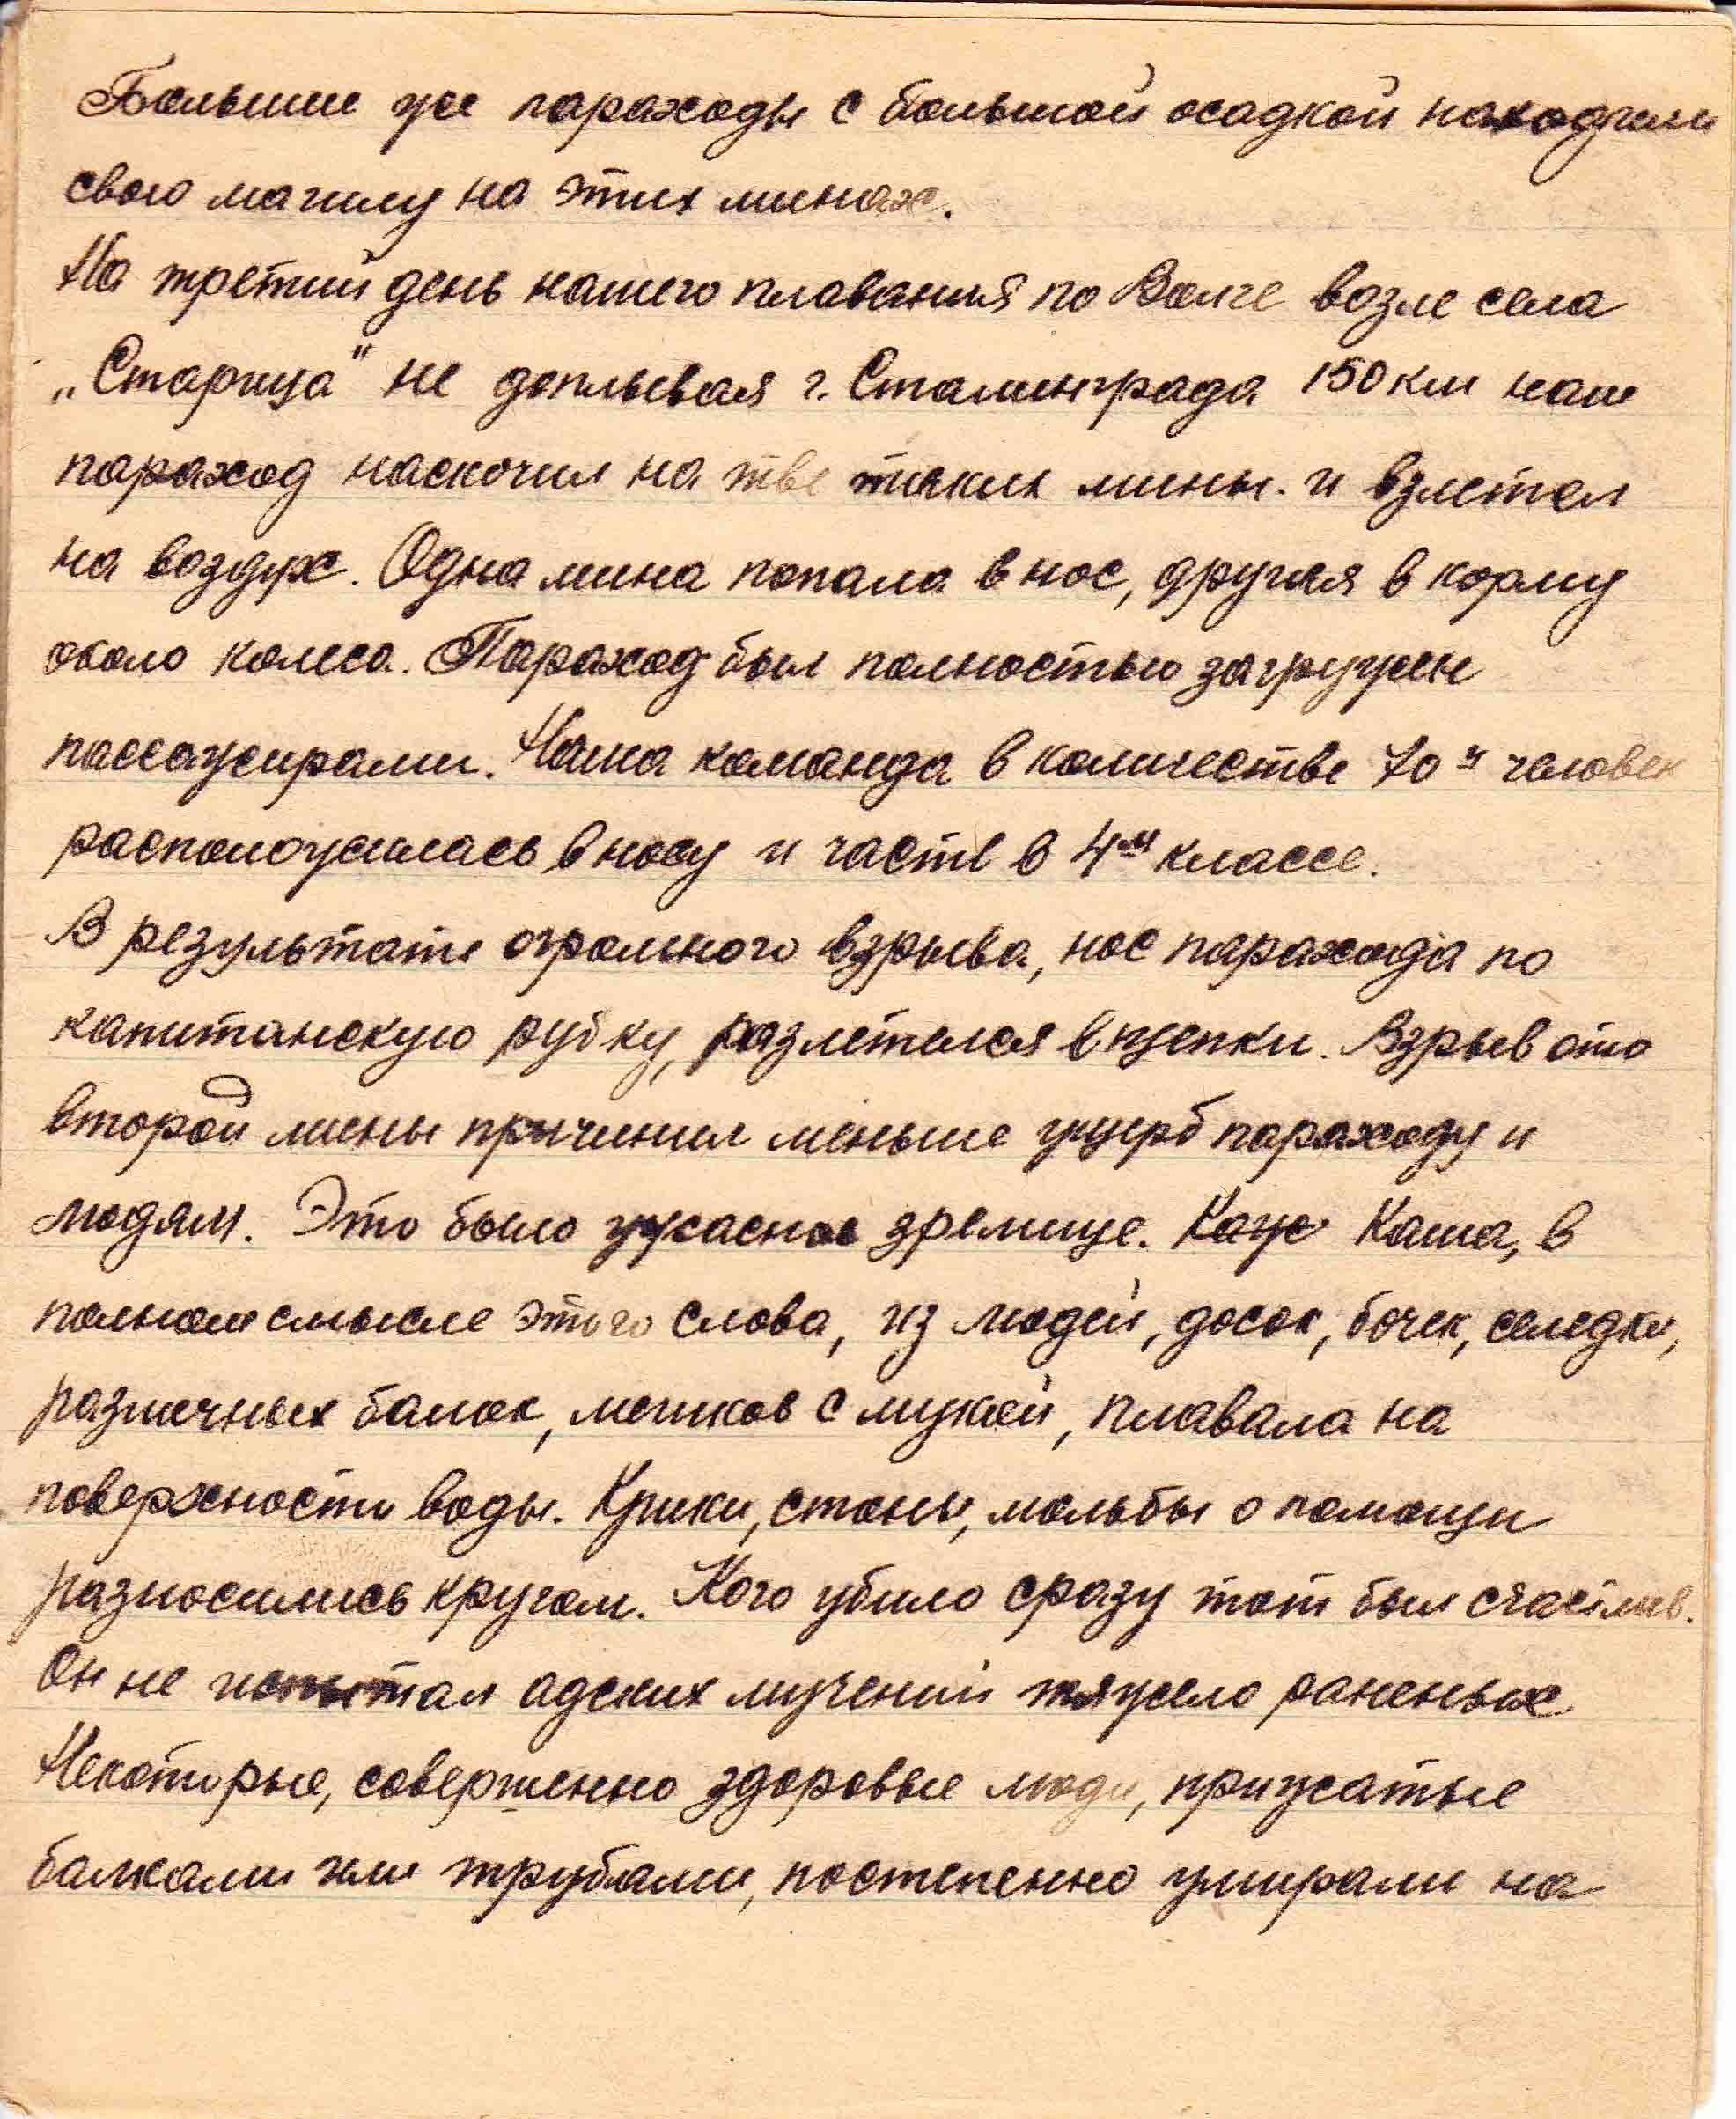 Большие же параходы с большой осадкой находили
свою могилу на этих минах.
На третий день нашего плавания по Волге возле села
„Старица" не доплывая г. Сталинграда 150 км наш
параход наскочил на две таких мины. и взлетел
на воздух. Одна мина попала в нос, другая в корму
около колеса. Параход был полностью загружен
пассажирами. Наша команда в количестве 70и человек
расположилась в носу и часть в 4ом классе.
В результате огромного взрыва, нос парахода по
капитанскую рубку, разлетелся в щепки. Взрыв ото
второй мины причинил меньше ущерб параходу и
людям. Это было ужасное зрелище. Каж Каша, в
полном смысле этого слова, из людей, досок, бочек, селедки,
различных балок, мешков с мукой, плавала на
поверхности воды. Крики, стоны, мольбы о помощи
разносились кругом. Кого убило сразу тот был счастлив.
Он не испытал адских мучений тяжело раненых
Некоторые, совершенно здоровые люди, прижатые
балками или трубами, постепенно умирали на